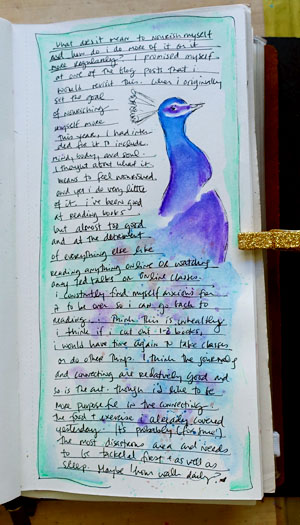 what does it mean to nourish myself
and how do i do more of it on it
more regularly. I promised myself
at one of the blog posts that i
would revisit this. when i originally
set the goal
of nourishing
myself more
this year, I had inten
ded for it to include
mind, body, and soul.
i thought about what it
means to feel nourished
and yet i do very little
of it. i've been good
at reading books
but almost too good
and at the detriment
of everything else like
reading anything online or watching
any ted talks or online classes.
i constantly find myself anxious for
it to be over so i can go back to
reading... think this is unhealthy
i think if i cut out 1-2 books,
i would have time again to take classes
or do other things. I think the journaling
and connecting are relatively good and
so is the art. though i'd like to be
more purposeful in the connecting.
the food + exercise i already covered
yesterday. It's probably
the most disastrous area and needs
to be tackled first + as well as
sleep. Maybe I how walk daily?